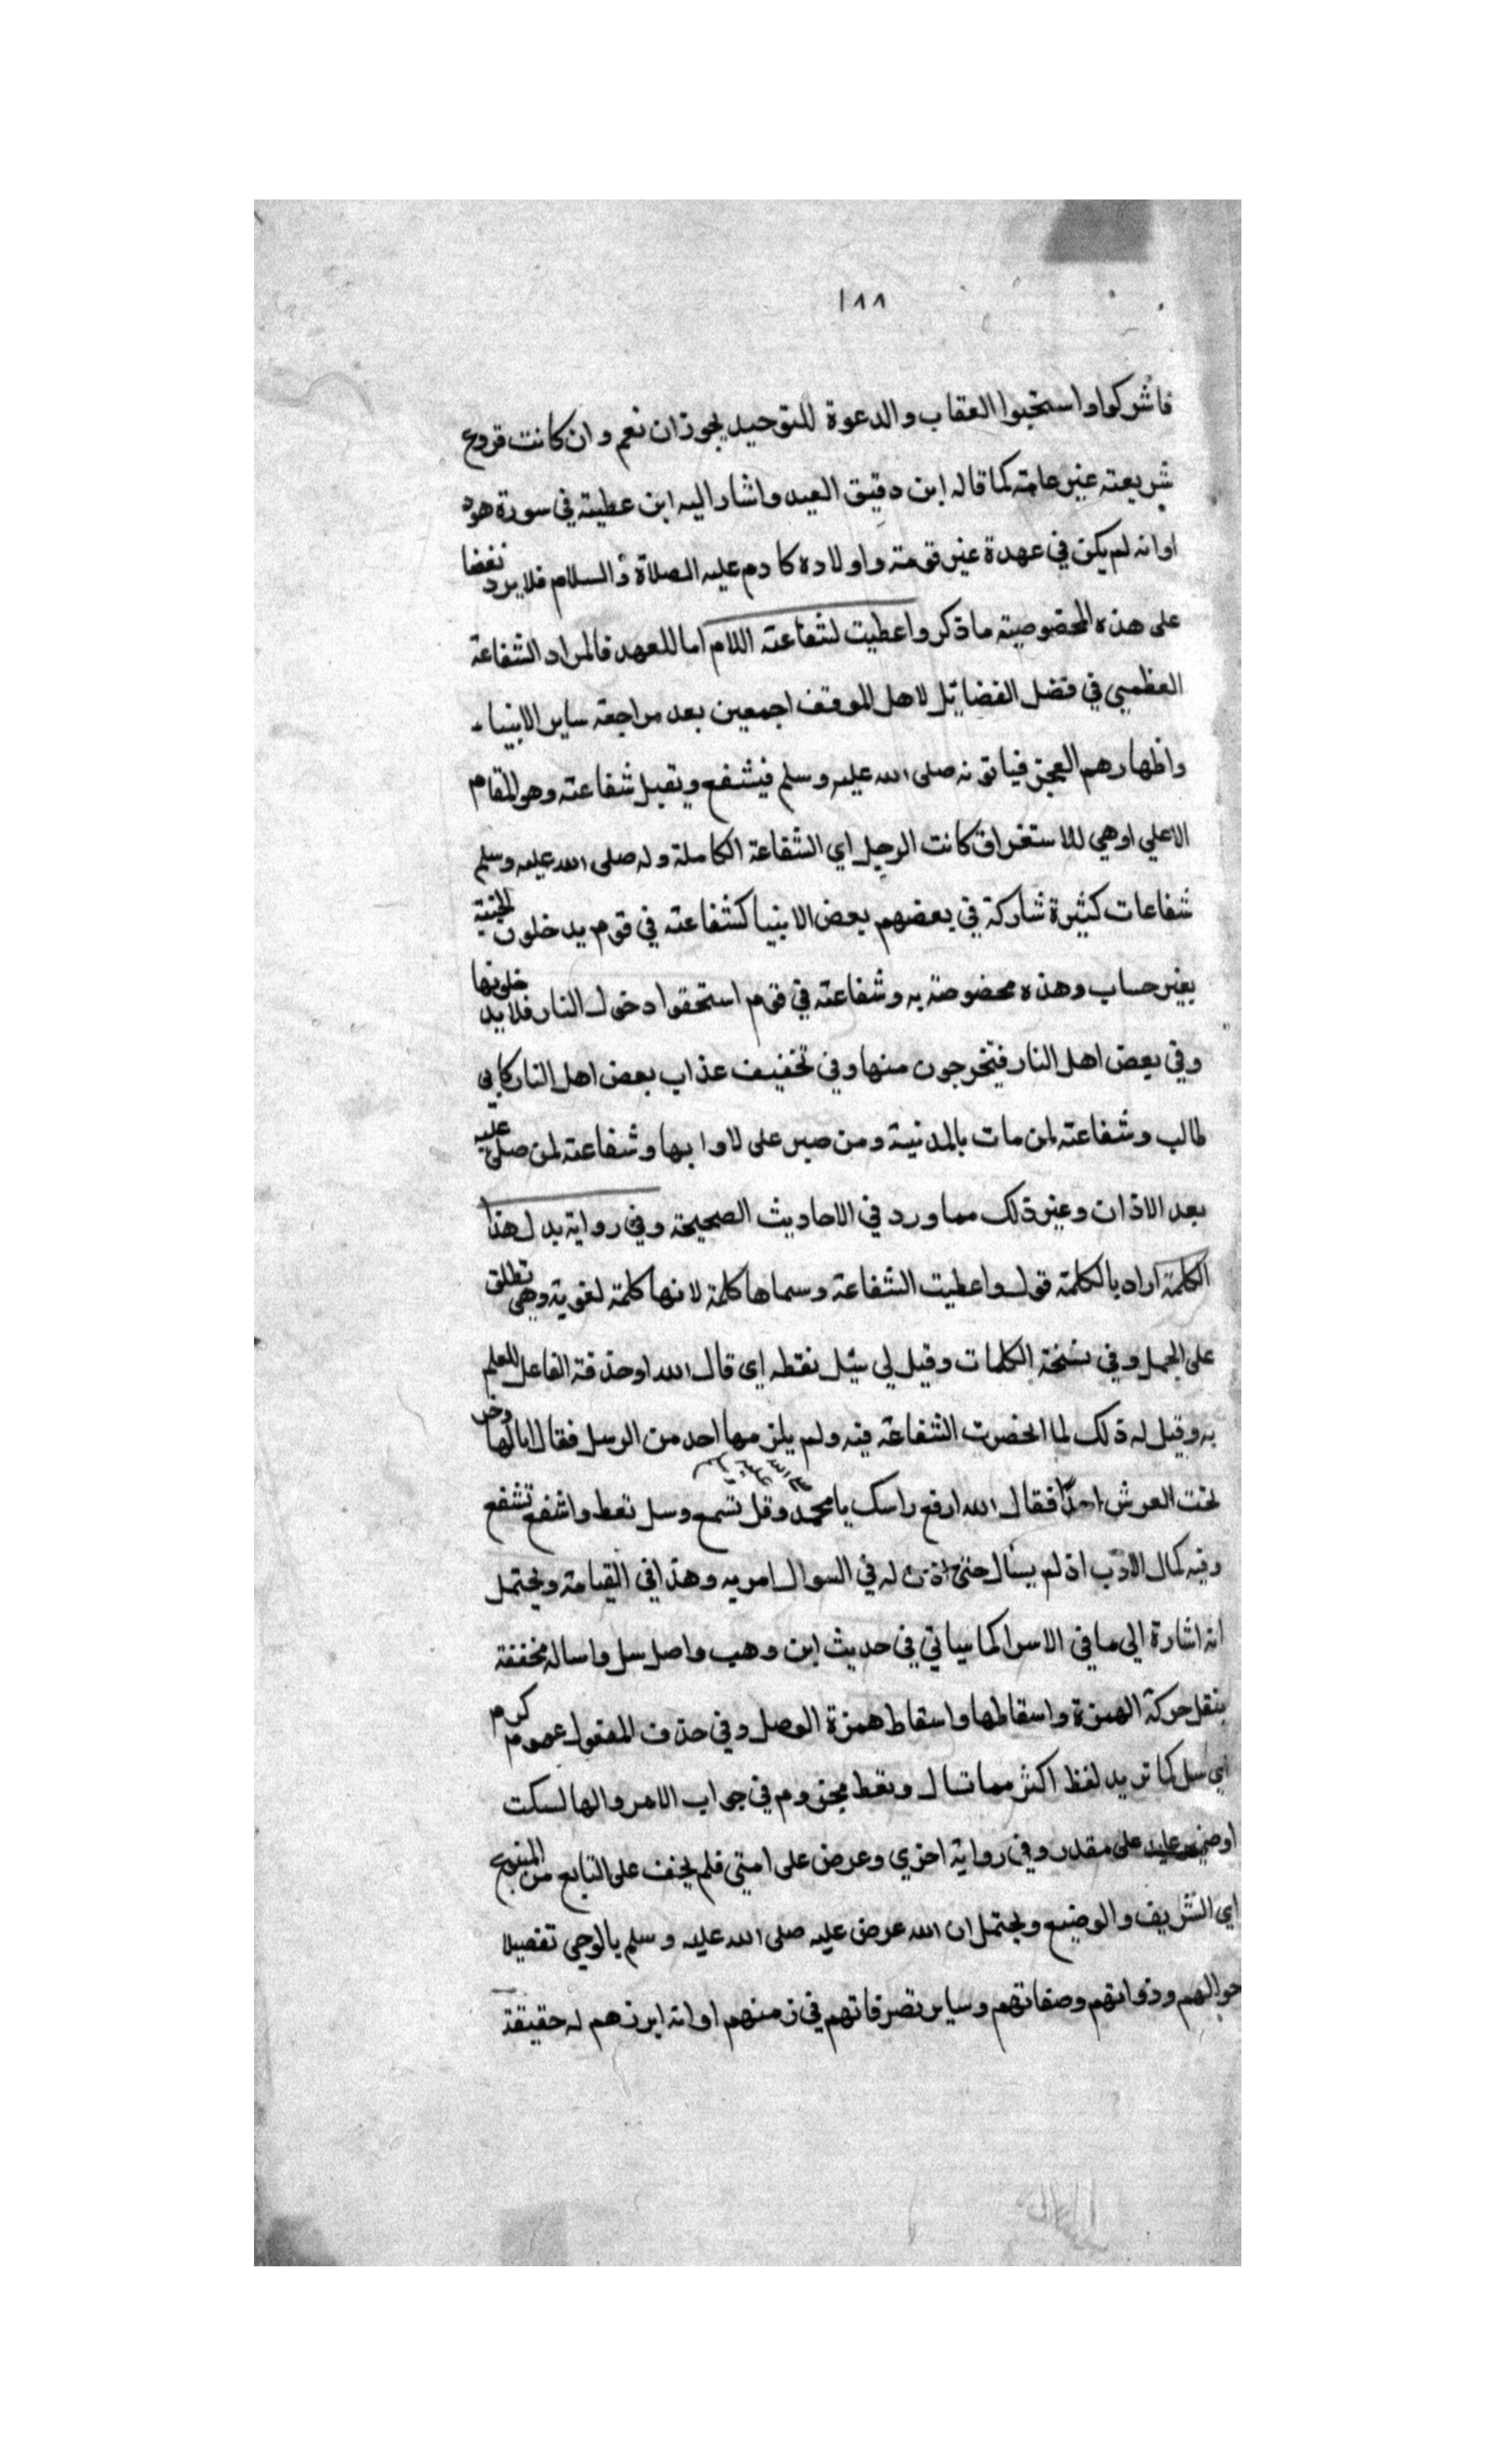 ١٨٨
فاشركوا واستحبوا العقاب والدعوة للتوحيد يجوز ان نعم وان كانت فروع
شريعته غير عامته كما قاله ابن دقيق العيد واشار اليه ابن عطية في سورة هود
او انه لم يكن في عهدة غير قومته واولاده كادم عليه الصلاة والسلام فلا يرد نغضا
على هذه الخصوصية ما ذكر واعطيت لشفاعته اللام اما للعهد فالمراد الشفاعة
العظمي في فضل الفضائل لاهل الموقف اجمعين بعد مراجعة ساير الانبياء
واظهارهم العجز فياتونه صلى الله عليه وسلم فيشفع وتقبل شفاعته وهو المقام
الاعلي او هي للاستغراق كانت الرجل اي الشفاعة الكاملة وله صلى الله عليه وسلم
شفاعات كثيرة شاركة في بعضهم بعض الانبيا كشفاعته في قوم يدخلون الجنة
بغير حساب وهذه مخصوصة به وشفاعته في قوم استحقوا دخول النار فلا يدخلونها
وفي بعض اهل النار فيخرجون منها وفي تخفيف عذاب بعض اهل النار كابي
طالب وشفاعته لمن مات بالمدنية ومن صبر على لاوايها وشفاعته لمن صلى عليه
بعد الاذان وغير ذلك مما ورد في الاحاديث الصحيحة وفي رواية بدل هذا
الكلمة اراد بالكلمة قوله واعطيت الشفاعة وسماها كلمة لانها كلمة لغوية وهي تطلق
على الجمل وفي نسخة الكلمات وقيل لي سل نقطه اي قال الله او حذفة الفاعل للعلم
به وقيل له ذلك لما انحضرت الشفاعة فيه ولم يلزمها احد من الرسل فقال انا لها وخر
تحت العرش فقال الله ارفع راسك يا محمد صلى الله عليه وسلم وقل تسمع وسل تعط واشفع تشفع
وفيه كمال الادب اذ لم يسال حتى اذن له في السوال امر به وهذا في القيامة ويحتمل
انه اشارة الى ما في الاسرا كما سياتي في حديث ابن وهب واصل سل واساله مخففة
بنقل حركة الهمزة واسقاطها واسقاط همزة الوصل وفي حذف المفعول عموم كرم
اي سل كما تريد لفظ اكثر مما تسال وتعط مجزوم في جواب الامر والها لسكت
او ضمير عايد على مقدر وفي رواية اخري وعرض على امتي فلم يخف على التابع من المتبوع
اي الشريف والوضيع ويحتمل ان الله عرض عليه صلى الله عليه وسلم بالوحي تفصيلا
حوالهم وذواتهم وصفاتهم وساير تصرفاتهم في زمنهم او انه ابرزهم له حقيقة